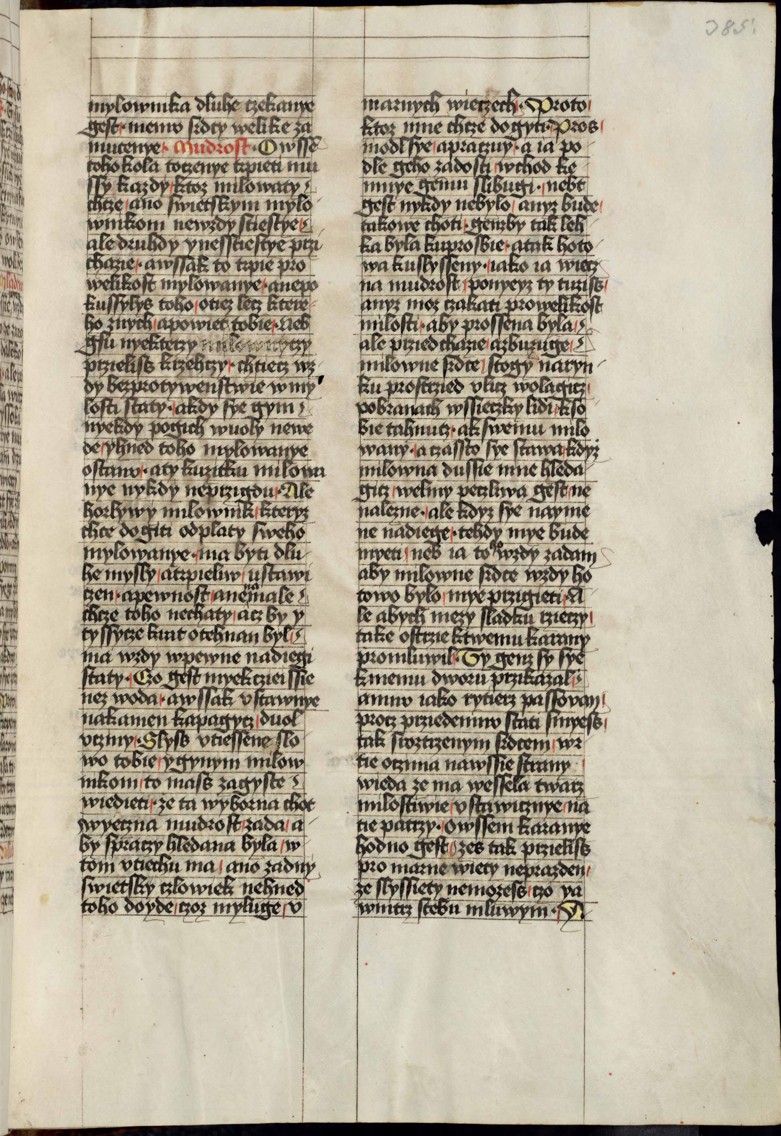 385
mylownika dluhe czekanye
gest· memv srdcy welike za
mucenye· Mudrost· Owssē
toho kola toczenye trpieti mu
ssy kazdy ktoz milowaty
chcze ano swietskym mylo
wnikom newzdy sczestye
ale druhdy ynessczestye przi
chazie· awssak to trpie pro
welikost mylowanye· anepo
kussylys toho otiez lecz ktere
ho znych apowiet tobie· Neb
gsu nyekterzy milownyczy
przieliss krzehczy· chtiecz wz
dy bezprotywenstwie wmy
losti staty· akdy sye gym
nyekdy pogich wuoly newe
de yhned toho mylowanye
ostanv· aty kuzitku milowa
nye nykdy neprzigdu· Ale
horlywy milownik kteryz
chce dogiti odplaty sweho
mylowanye· ma byti dlu
he mysly atrpieliw ustawi
czen· apewnost anemale
chcze toho nechaty acz by y
tyssycze krat otehnan byl
ma wzdy wpewne nadiegi
staty· Czo gest myekcziei ssie
nez woda· awssak vstawnye
nakamen kapagycz duol
vcziny· Slyss vtiessene slo
wo tobie ygynym milow
nikom to mass zagyste
wiedieti· ze ta wyborna chot
wyeczna mudrost zada a
by spraczy hledana byla w
tom vtiechu ma ano zadny
swietsky czlowiek nehned
toho doyde czoz myluge v
marnych wieczech· Proto
ktoz mne chcze dogyti· Pros
modl sye apraczuy· a ia po
dle geho zadosti wchod ke
mnye gemu slibugi· nebt
gest nykdy nebylo anyz bude
takowe choti· genzby tak leh
ka byla kuprosbie· atak hoto
wa kuslysseny· iako ia wiecz
na mudrost ponyeyz ty turziss
anyz moz czakati prowelikost
milosti· aby prossena byla
ale przied chazie azbuzuge
milowne srdce stogy naryn
ku prostrzied vlicz wolagicz
pobranach wssieczky lidi kso
bie tahnucz· ak swemu milo
wany· a czassto sye stawa kdyz
milowna dussie mne hleda
gicz welmy peczliwa gest ne
nalezne· ale kdyz sye nayme
ne nadiege· tehdy mye bude
myeti neb ia toho wzdy zadam
aby milowne srdce wzdy ho
towo bylo mye przigieti· A
le abych mezy sladku rzieczy
take ostrzie ktwemu karany
promluwil· Ty genz sy sye
kmemu dworu przikazal
amnv iako rytierz passowan
procz przedemnv stati smyess
tak srozrzenym srdcem wr
tie oczima nawssie strany
wieda ze ma wessela twarz
milostiwie vstawicznye na
tie patrzy· Owssem karanye
hodno gest zess tak przieliss
pro marne wiecy neprazden
ze slyssiety nemozess czo ya
wnitrz stebu mluwym· T